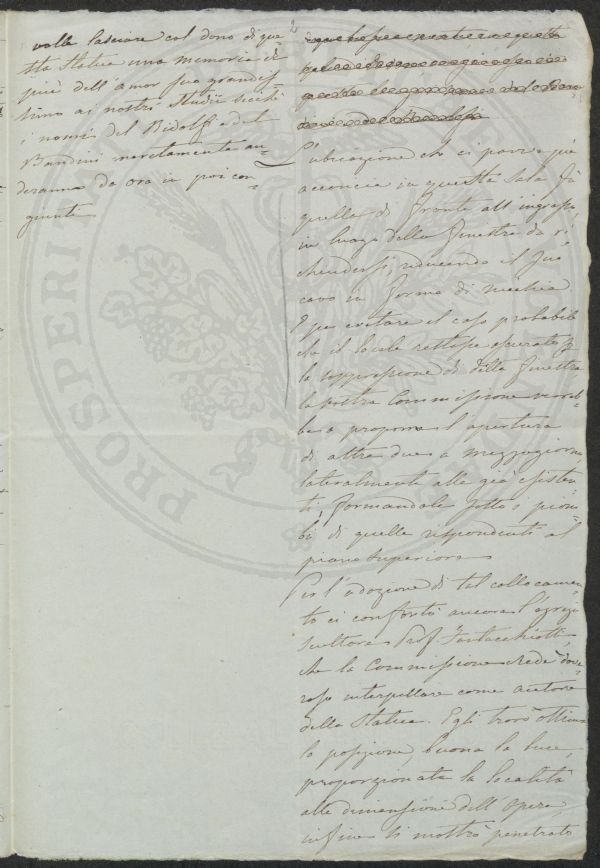 volle lasciare col dono di que
sta Statua una memoria di
più dell'amor suo grandis
simo ai nostri Studii sicché
i nomi del Ridolfi e del
Bandini meritamente an
deranno da ora in poi con
giunti
2
L'ubicazione che ci parve più
acconcia in questa Sala fu
quella di fronte all'ingresso,
in luogo della finestra da ri
chiudersi, riducendo il suo
cavo in forma di nicchia
E per evitare il caso probabile
che il locale restasse oscurato p
la soppressione di detta finestra
la vostra Commissione
a proporre l'apertura
di altre due a mezzogiorno
lateralmente alle già esisten
ti, formandole sotto i piom
bi di quelle rispondenti al
piano superiore
Per l'adozione di tal collocamen
to ci confortò ancora l'egregio
Scultore Prof. Fantacchiotti,
che la Commissione credè dove
roso interpellare come autore
della Statua. Egli trovò ottima
la posizione, buona la luce,
proporzionata la località
alle dimensioni dell'Opera,
infine si mostrò penetrato
PROSPERITÀ